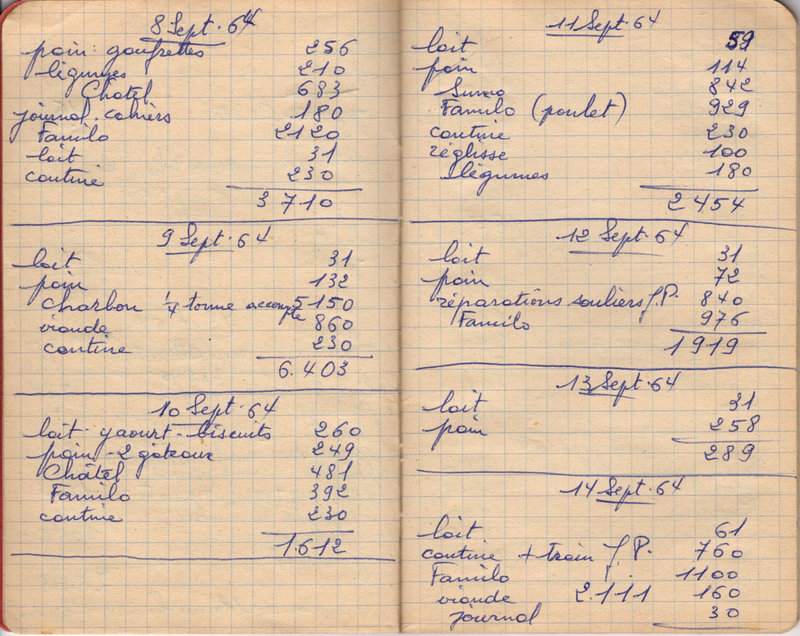 8 Sept. 64
pain. gaufrettes 256
légumes 210
Châtel 683
journal. cahiers 180
Familo 2120
lait 31
cantine 230
3 710
9 Sept. 64
lait 31
pain 132
charbon 1/4 tonne accompte 5150
viande 860
cantine 230
6.403
10 Sept. 64
lait. yaourt. biscuits 260
pain - 2 gâteaux 249
Châtel 481
Familo 392
cantine 230
1.612
11 Sept. 64
lait 59
pain 114
Suma 842
Familo (poulet) 929
cantine 230
réglisse 100
légumes 180
2 454
12 Sept. 64
lait 31
pain 72
réparations souliers J.P. 840
Familo 976
1919
13 Sept. 64
lait 31
pain 258
289
14 Sept. 64
lait 61
cantine + train J.P. 760
Familo 1100
viande 2.111 160
journal 30